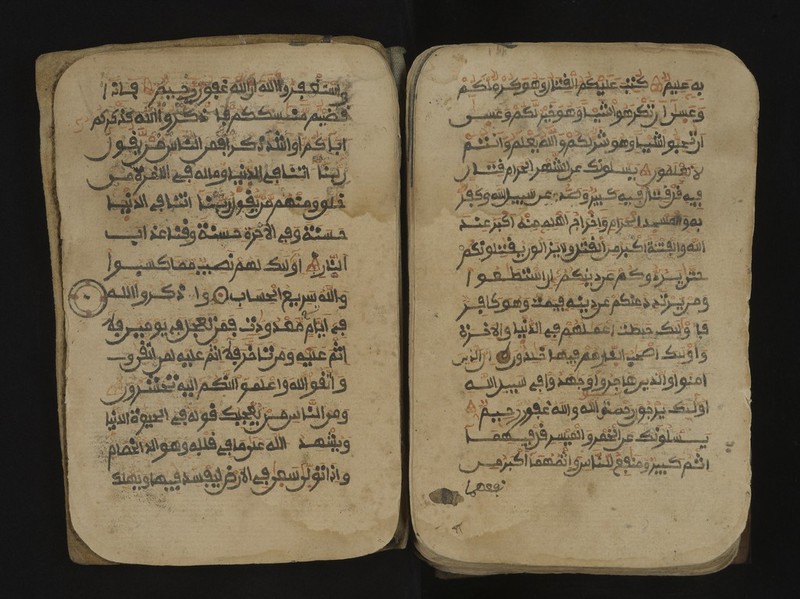 به عليم كتب عليكم القتال وهو كره لكم
وعسى ان تكرهوا شيا وهو خير لكم وعسى
ان تحبوا شيا وهو شر لكم والله يعلم وانتم
لا تعلمون يسلونك عن الشهر الحرام قتال
فيه قل قتال فيه كبير وصد عن سبيل الله وكفر
به والمسجد الحرام واخراج اهله منه اكبر عند
الله والفتنة اكبر من القتل ولا يزالون يقتلونكم
حتى يردوكم عن دينكم ان استطعوا
ومن يرتدد منكم عن دينه فيمت وهو كافر
فاولئك حبطت اعملهم في الدنيا والاخرة
واولئك اصحب النار هم فيها خلدون ان الذين
امنوا والذين هاجروا وجهدوا في سبيل الله
اولئك يرجون رحمت الله والله غفور رحيم
يسلونك عن الخمر والميسر قل فيهما
اثم كبير ومنفع للناس واثمهما اكبر من
نفعهما
واستغفروا الله ان الله غفور رحيم فاذا
قضيتم منسككم فاذكروا الله كذكركم
اباكم او اشد ذكرا فمن الناس من يقول
ربنا اتنا في الدنيا وماله في الاخرة من
خلو ومنهم من يقول ربنا اتنا في الدنيا
حسنة وفي الاخرة حسنة وقنا عذاب
النار اولئك لهم نصيب مما كسبوا
والله سريع الحساب واذكروا الله
في ايام معدودت فمن تعجل في يومين فلا
اثم عليه ومن تاخر فلا اثم عليه لمن اتقى
واتقوا الله واعلموا انكم اليه تحشرون
ومن الناس من يعجبك قوله في الحيوة الدنيا
ويشهد الله على ما في قلبه وهو الد الخصام
واذا تولى سعى في الارض ليفسد فيها ويهلك